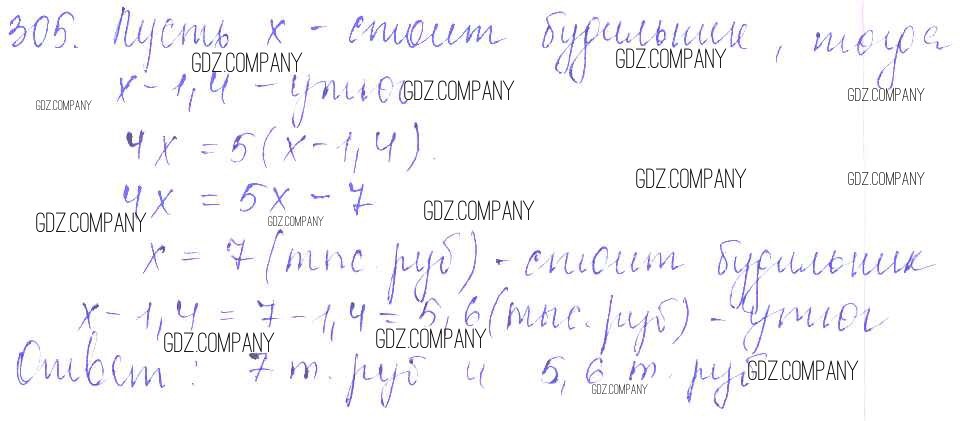 305. Пусть х - стоит будильник, тогда
GDZ.COMPANY GDZ.COMPANY
х - 1,4 - утюг GDZ.COMPANY
GDZ.COMPANY GDZ.COMPANY
4х = 5(х - 1,4).
GDZ.COMPANY GDZ.COMPANY
4х = 5х - 7
GDZ.COMPANY GDZ.COMPANY GDZ.COMPANY
х = 7 (тыс. руб) - стоит будильник
х - 1,4 = 7 - 1,4 = 5,6 (тыс. руб) - утюг
GDZ.COMPANY GDZ.COMPANY
Ответ: 7 т. руб и 5,6 т. руб
GDZ.COMPANY GDZ.COMPANY